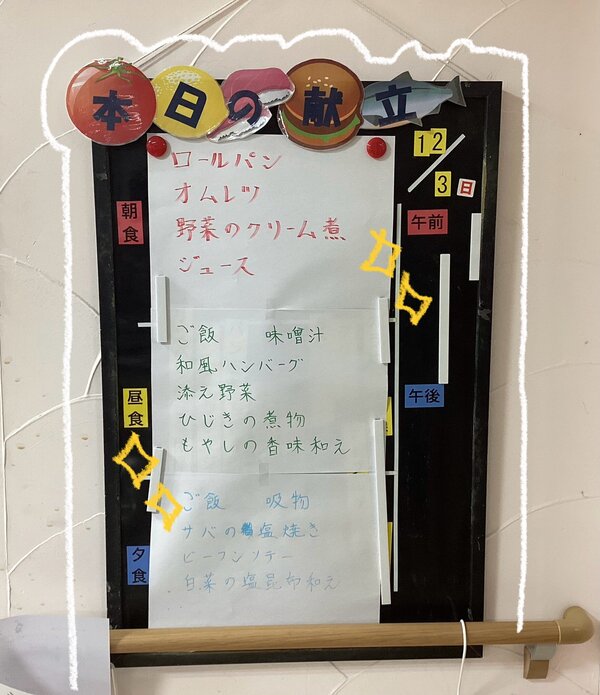 本日の献立
12/3 日
朝食
ロールパン
オムレツ
野菜のクリーム煮
ジュース
午前
昼食
ご飯 味噌汁
和風ハンバーグ
添え野菜
ひじきの煮物
もやしの香味和え
午後
夕食
ご飯 吸物
サバの塩焼き
ビーフンソテー
白菜の塩昆布和え